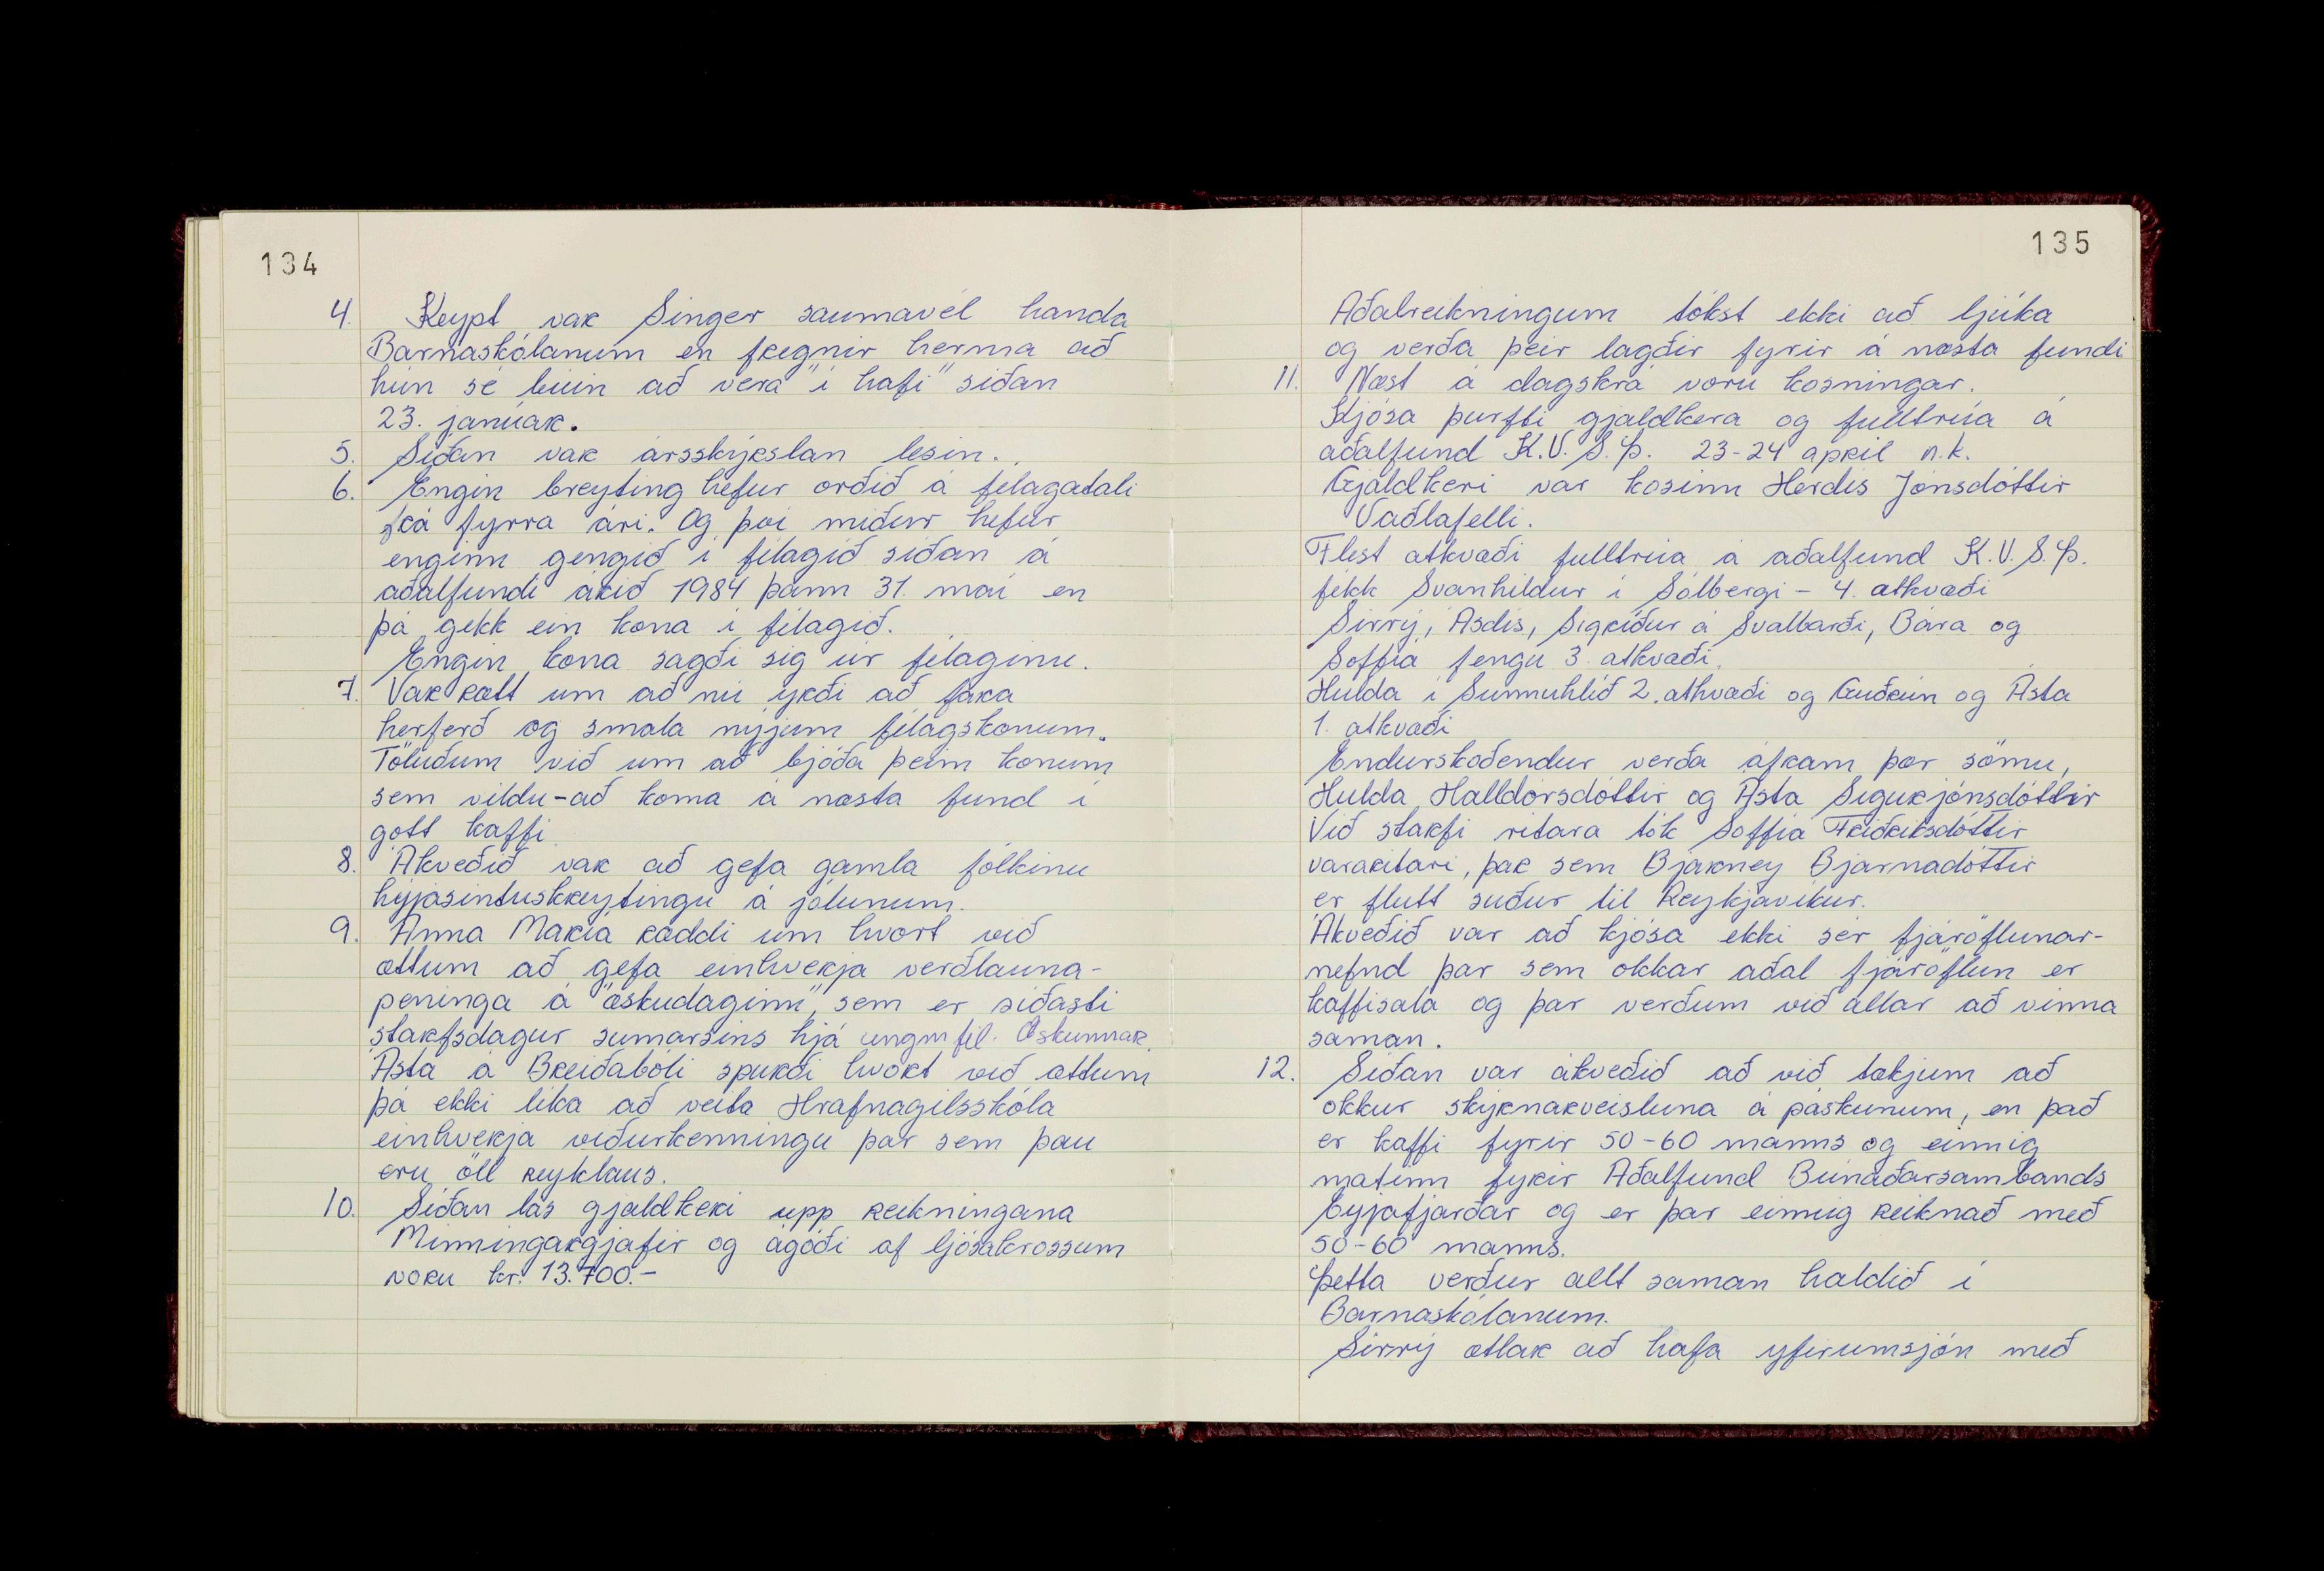 134
4. Keypt var Singer saumavél handa
Barnaskólanum en fregnir herma að
hún sé búin að vera "í hafi" síðan
23. janúar.
5. Síðan var ársskýrslan lesin.
6. Engin breyting hefur orðið á félagatali
frá fyrra ári. Og því miður hefur
enginn gengið í félagið síðan á
aðalfundi árið 1984 þann 31. maí en
þá gekk ein kona í félagið.
Engin kona sagði sig úr félaginu.
7. Var rætt um að nú yrði að fara
herferð og smala nýjum félagskonum.
Töluðum við um að bjóða þeim konum
sem vildu-að koma á næsta fund í
gott kaffi
8. Ákveðið var að gefa gamla fólkinu
hýjasintuskreytingu á jólunum.
9. Anna María ræddi um hvort við
ættum að gefa einhverja verðlauna-
peninga á "æskudaginn", sem er síðasti
starfsdagur sumarsins hjá ungm fél. Æskunnar.
Ásta á Breiðabóli spurði hvort við ættum
þá ekki líka að veita Hrafnagilsskóla
einhverja viðurkenningu þar sem þau
eru öll reyklaus.
10. Síðan las gjaldkeri upp reikningana
Minningargjafir og ágóði af ljósakrossum
voru kr. 13.700.-
135
Aðalreikningum tókst ekki að ljúka
og verða þeir lagðir fyrir á næsta fundi
11. Næst á dagskrá voru kosningar.
Kjósa þurfti gjaldkera og fulltrúa á
aðalfund K.V.S.Þ. 23-24 apríl n.k.
Gjaldkeri var kosinn Herdís Jónsdóttir
Vaðlafelli.
Flest atkvæði fulltrúa á aðalfund K.V.S.Þ.
fékk Svanhildur í Sólbergi - 4. atkvæði
Sirrý, Ásdís, Sigríður á Svalbarði, Bára og
Soffía fengu 3. atkvæði.
Hulda í Sunnuhlíð 2. atkvæði og Guðrún og Ásta
1. atkvæði
Endurskoðendur verða áfram þær sömu,
Hulda Halldórsdóttir og Ásta Sigurjónsdóttir
Við starfi ritara tók Soffía Friðriksdóttir
vararitari, þar sem Bjarney Bjarnadóttir
er flutt suður til Reykjavíkur.
Ákveðið var að kjósa ekki sér fjáröflunar-
nefnd þar sem okkar aðal fjáröflun er
kaffisala og þar verðum við allar að vinna
saman.
12. Síðan var ákveðið að við tækjum að
okkur skýrnarveisluna á páskunum, en það
er kaffi fyrir 50-60 manns og einnig
matinn fyrir Aðalfund Búnaðarsambands
Eyjafjarðar og er þar einnig reiknað með
50-60 manns.
Þetta verður allt saman haldið í
Barnaskólanum.
Sirrý ætlar að hafa yfirumsjón með